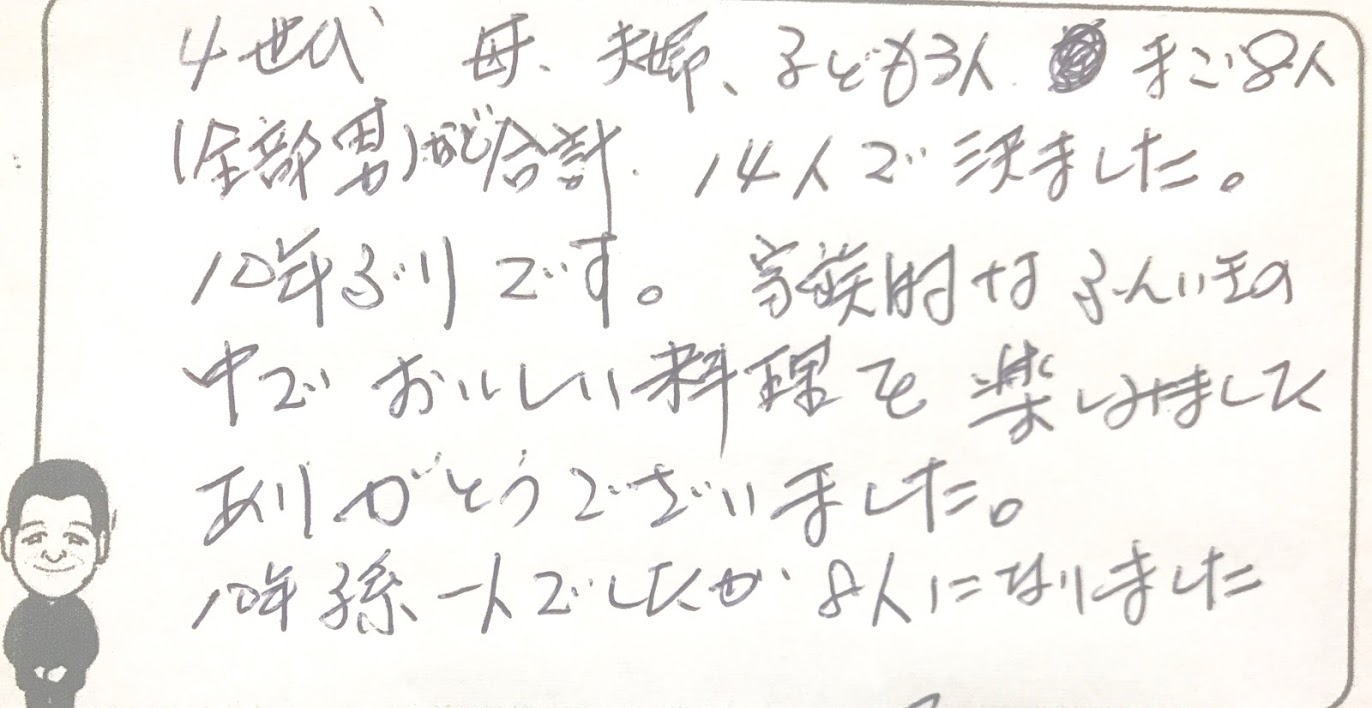 4世代 母、夫婦、子ども3人 まご8人
(全部男)など合計. 14人で来ました。
10年ぶりです。 家族的なふんいきの
中でおいしい料理を楽しみまして
ありがとうございました。
10年孫一人でしたが8人になりました